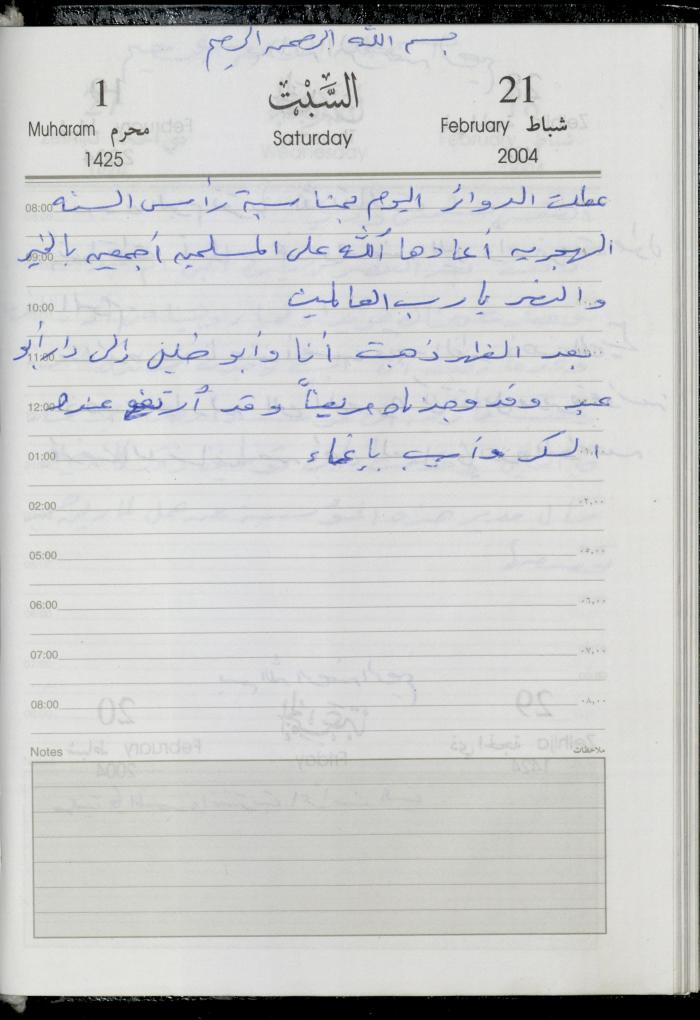 بسم الله الرحمن الرحيم
1 السَّبْت 21
Muharam محرم Saturday February شباط
1425 2004
08:00 عطلت الدوائر اليوم بمناسبة رأس السنه
09:00 الهجريه أعادها الله على المسلمين أجمعين بالخير
10:00 والنصر يا رب العالمين
11:00 بعد الظهر ذهبت أنا وأبو خليل إلى دار أبو
12:00 عبد وقد وجدناه مريضاً وقد أرتفع عنده
01:00 السكر وأصيب بإغماء
02:00 ٠٢,٠٠
05:00 ٠٥,٠٠
06:00 ٠٦,٠٠
07:00 ٠٧,٠٠
08:00 ٠٨,٠٠
Notes ملاحظات